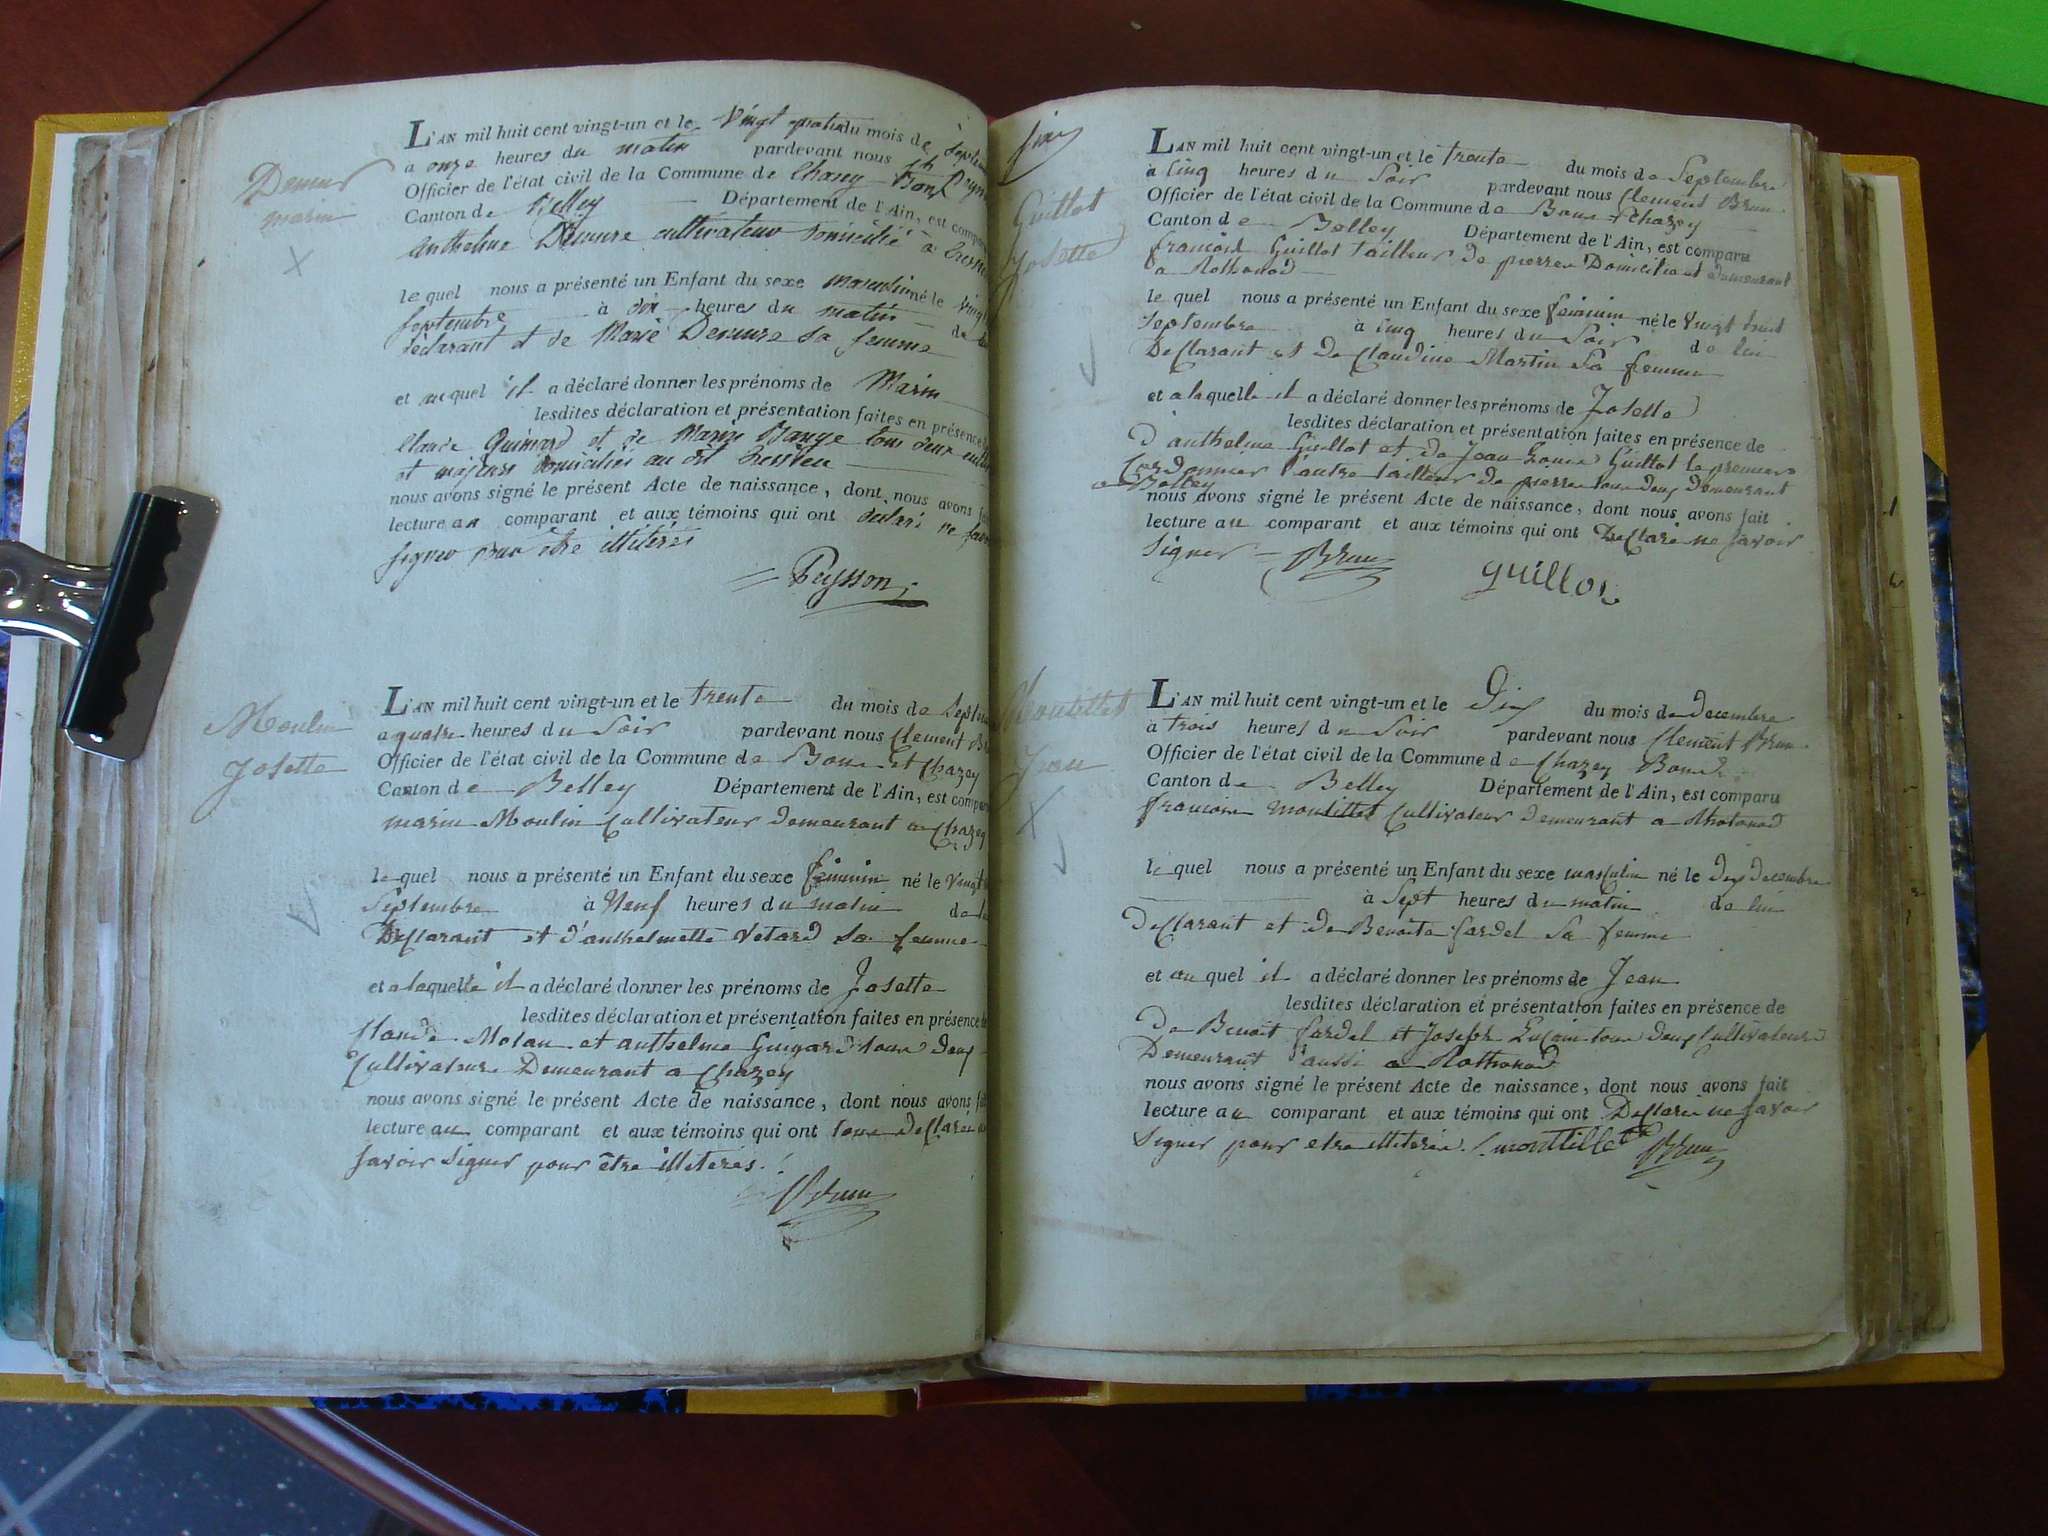 Demur
marin
L'AN mil huit cent vingt-un et le Vingt quatre du mois de Septem
a onze heures du matin pardevant nous
Officier de l'état civil de la Commune de Chazey Bons
Canton de Belley Département de l'Ain, est compa
anthelme Demure cultivateur Domicilié à
le quel nous a présenté un Enfant du sexe masculin né le Vingt
Septembre à dix heures du matin de
déclarant et de Marie Demure sa femme
et auquel il a déclaré donner les prénoms de Marin
lesdites déclaration et présentation faites en présence
Claude Guinard et de Marin tous deux
et majeurs domiciliés au dit
nous avons signé le présent Acte de naissance, dont nous avons fai
lecture au comparant et aux témoins qui ont déclaré ne
signer pour être illitérés
Peysson
Moulin
Josette
L'AN mil huit cent vingt-un et le trente du mois de Septem
a quatre heures du Soir pardevant nous Clement Br
Officier de l'état civil de la Commune de Bons et Chazey
Canton de Belley Département de l'Ain, est compa
marin Moulin Cultivateur Demeurant a Chazey
le quel nous a présenté un Enfant du sexe féminin né le Vingt
Septembre à Neuf heures du matin de
Déclarant et d'anthelmette Vetard Sa femme
et a laquelle il a déclaré donner les prénoms de Josette
lesdites déclaration et présentation faites en présence de
Claude Molan et anthelme Guigard tous deux
Cultivateurs Demeurant a Chazey
nous avons signé le présent Acte de naissance, dont nous avons fai
lecture au comparant et aux témoins qui ont tous Déclaré
Savoir Signer pour être illiterés.
Brun
Guillot
Josette
L'AN mil huit cent vingt-un et le trente du mois de Septembre
à Cinq heures du Soir pardevant nous Clement Brun
Officier de l'état civil de la Commune de Bons Chazey
Canton de Belley Département de l'Ain, est comparu
francois Guillot tailleur de pierre Domicilié et demeurant
a Rothonod
le quel nous a présenté un Enfant du sexe féminin né le Vingt huit
Septembre à Cinq heures du Soir de lui
Déclarant et de Claudine Martin Sa femme
et a laquelle il a déclaré donner les prénoms de Josette
lesdites déclaration et présentation faites en présence de
D'anthelme Guillot et de Jean Guillot le premier
Cordonnier l'autre tailleur de pierre tous deux Demeurant
a Belley
nous avons signé le présent Acte de naissance, dont nous avons fait
lecture au comparant et aux témoins qui ont Déclaré ne Savoir
Signer Brun
guillot
Moutillet
Jean
L'AN mil huit cent vingt-un et le Dix du mois de Decembre
à trois heures du Soir pardevant nous Clement Brun
Officier de l'état civil de la Commune de Chazey Bons
Canton de Belley Département de l'Ain, est comparu
francois moutillet Cultivateur Demeurant a Rhotonod
le quel nous a présenté un Enfant du sexe masculin né le Dix Decembre
à Sept heures du matin de lui
Déclarant et de Benoite fardel Sa femme
et au quel il a déclaré donner les prénoms de Jean
lesdites déclaration et présentation faites en présence de
De Benoit fardel et Joseph tous deux Cultivateurs
Demeurant aussi a Rothonod
nous avons signé le présent Acte de naissance, dont nous avons fait
lecture au comparant et aux témoins qui ont Déclaré ne Savoir
Signer pour etre illiterés. moutillet Brun